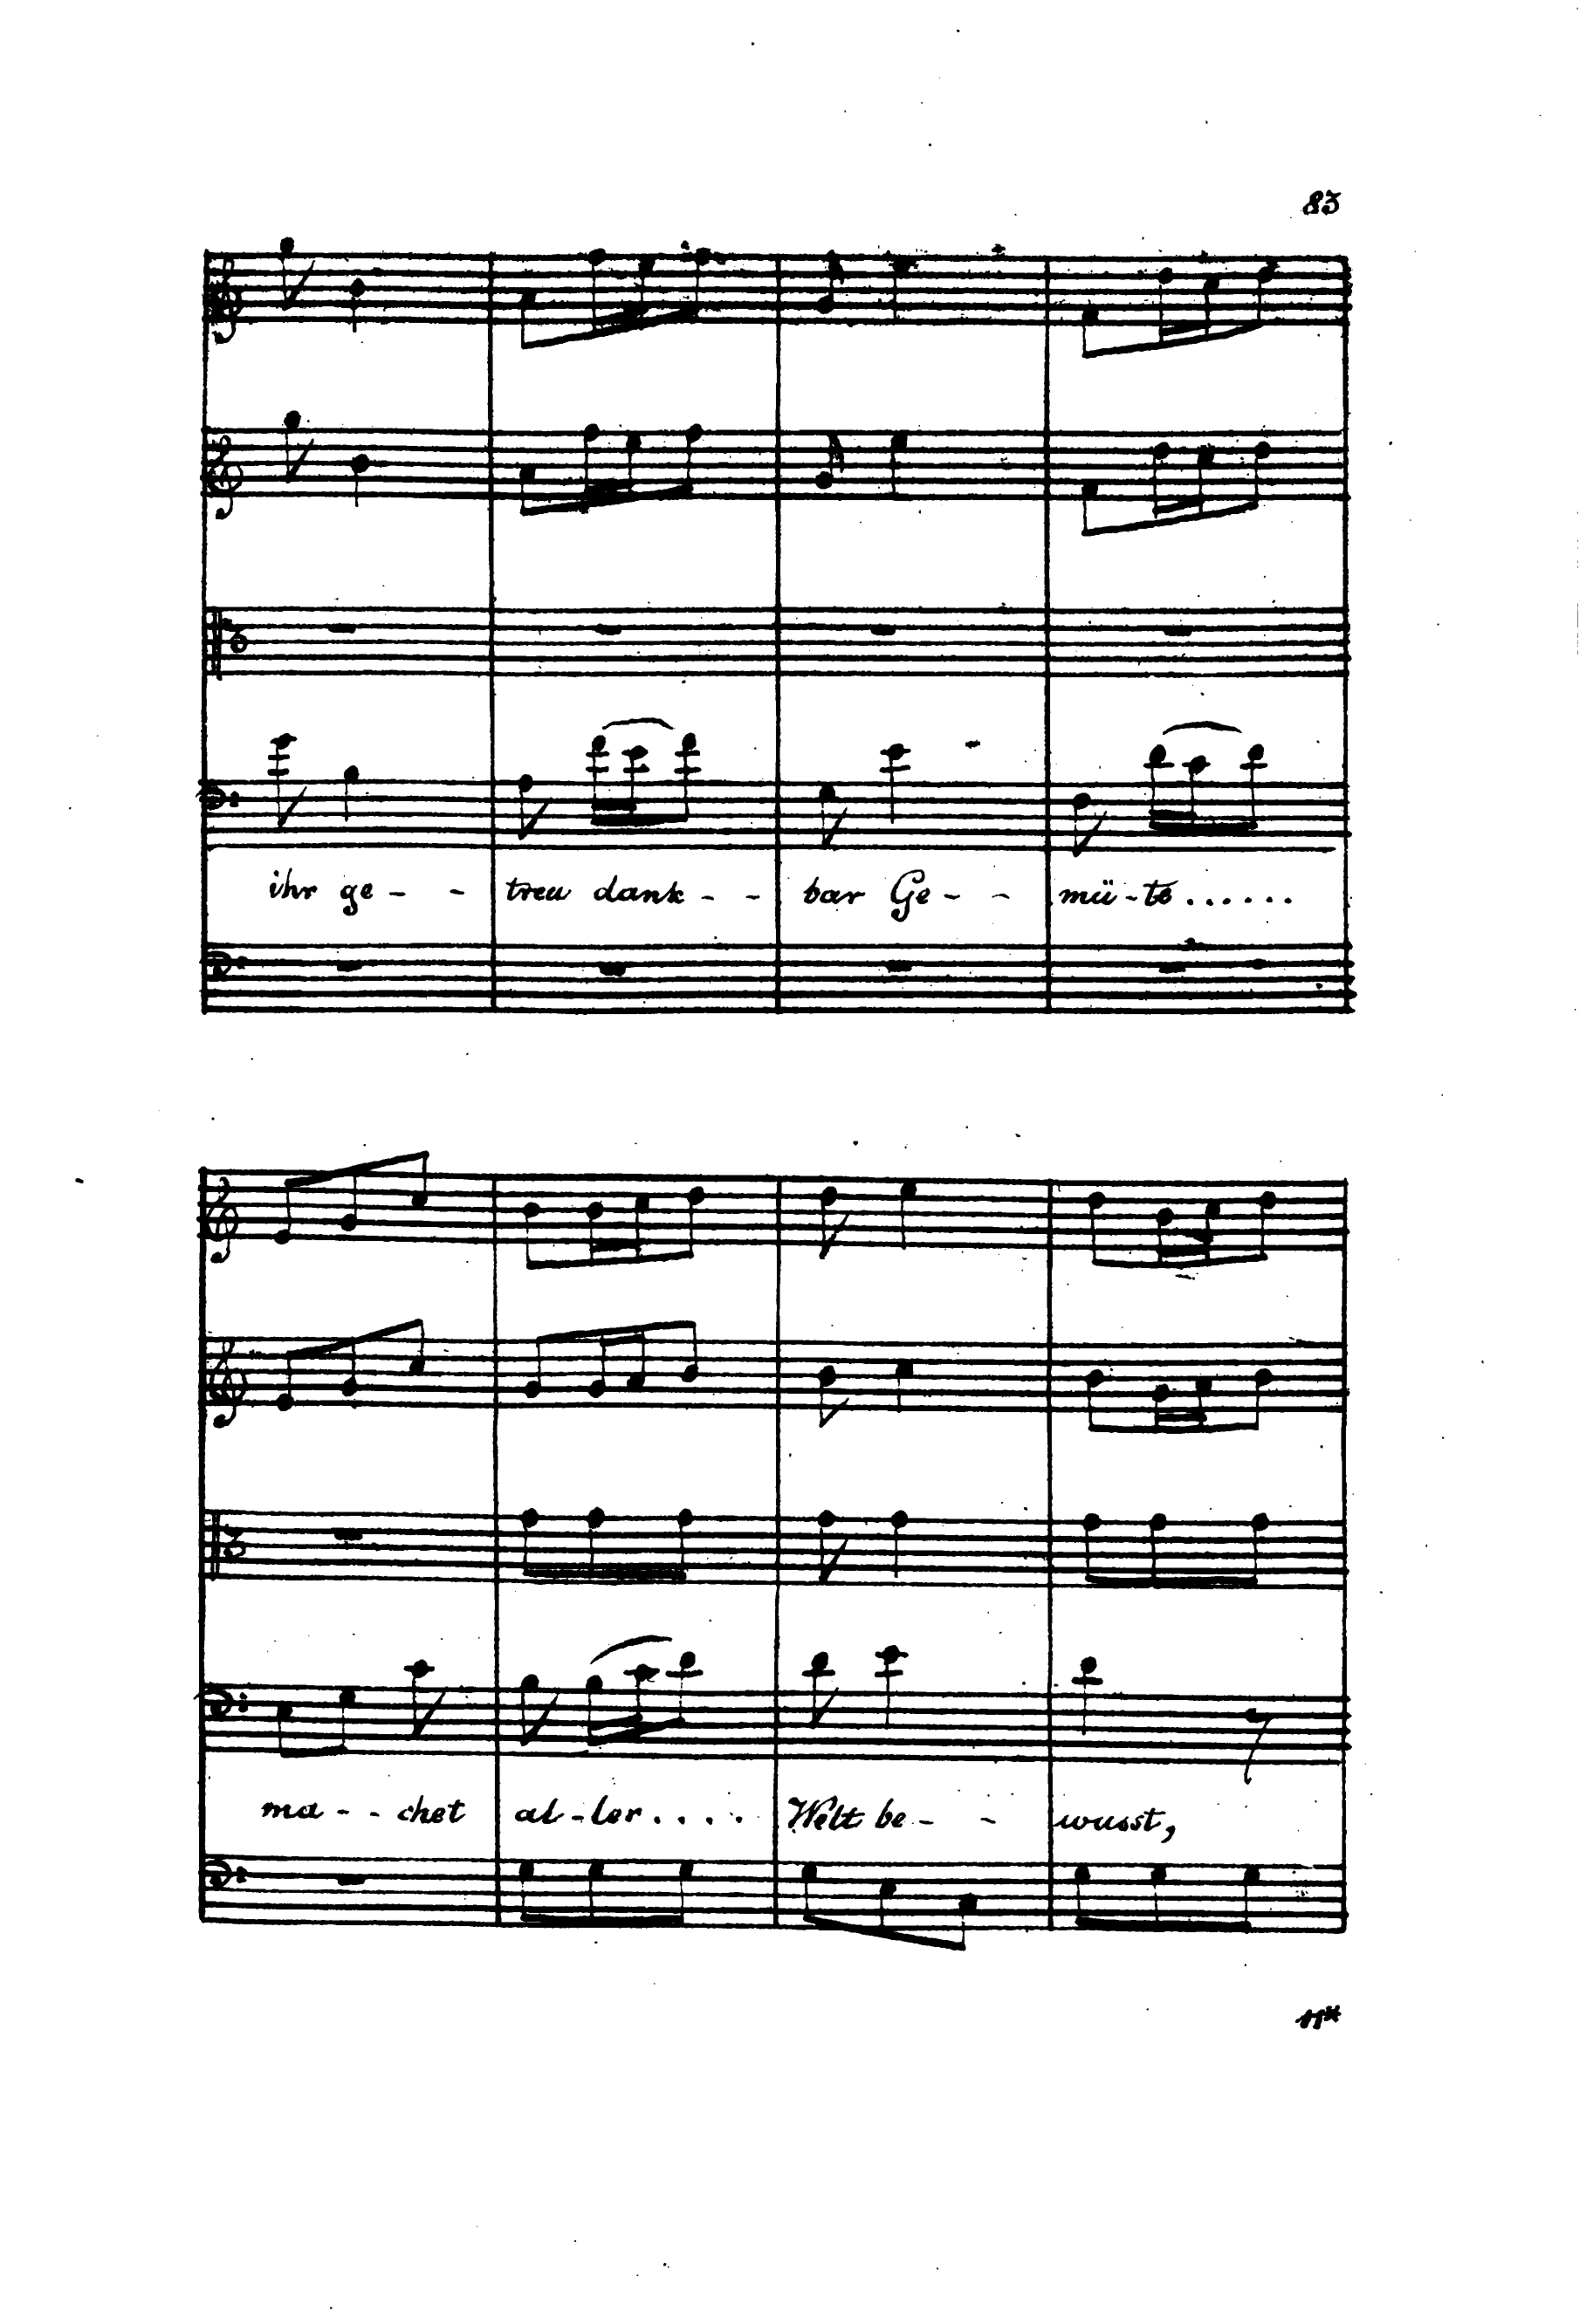 83
ihr ge - - treu dank - - bar Ge - - mü - te . . . . . .
ma - - chet al - ler . . . . Welt be - - wusst,
11*